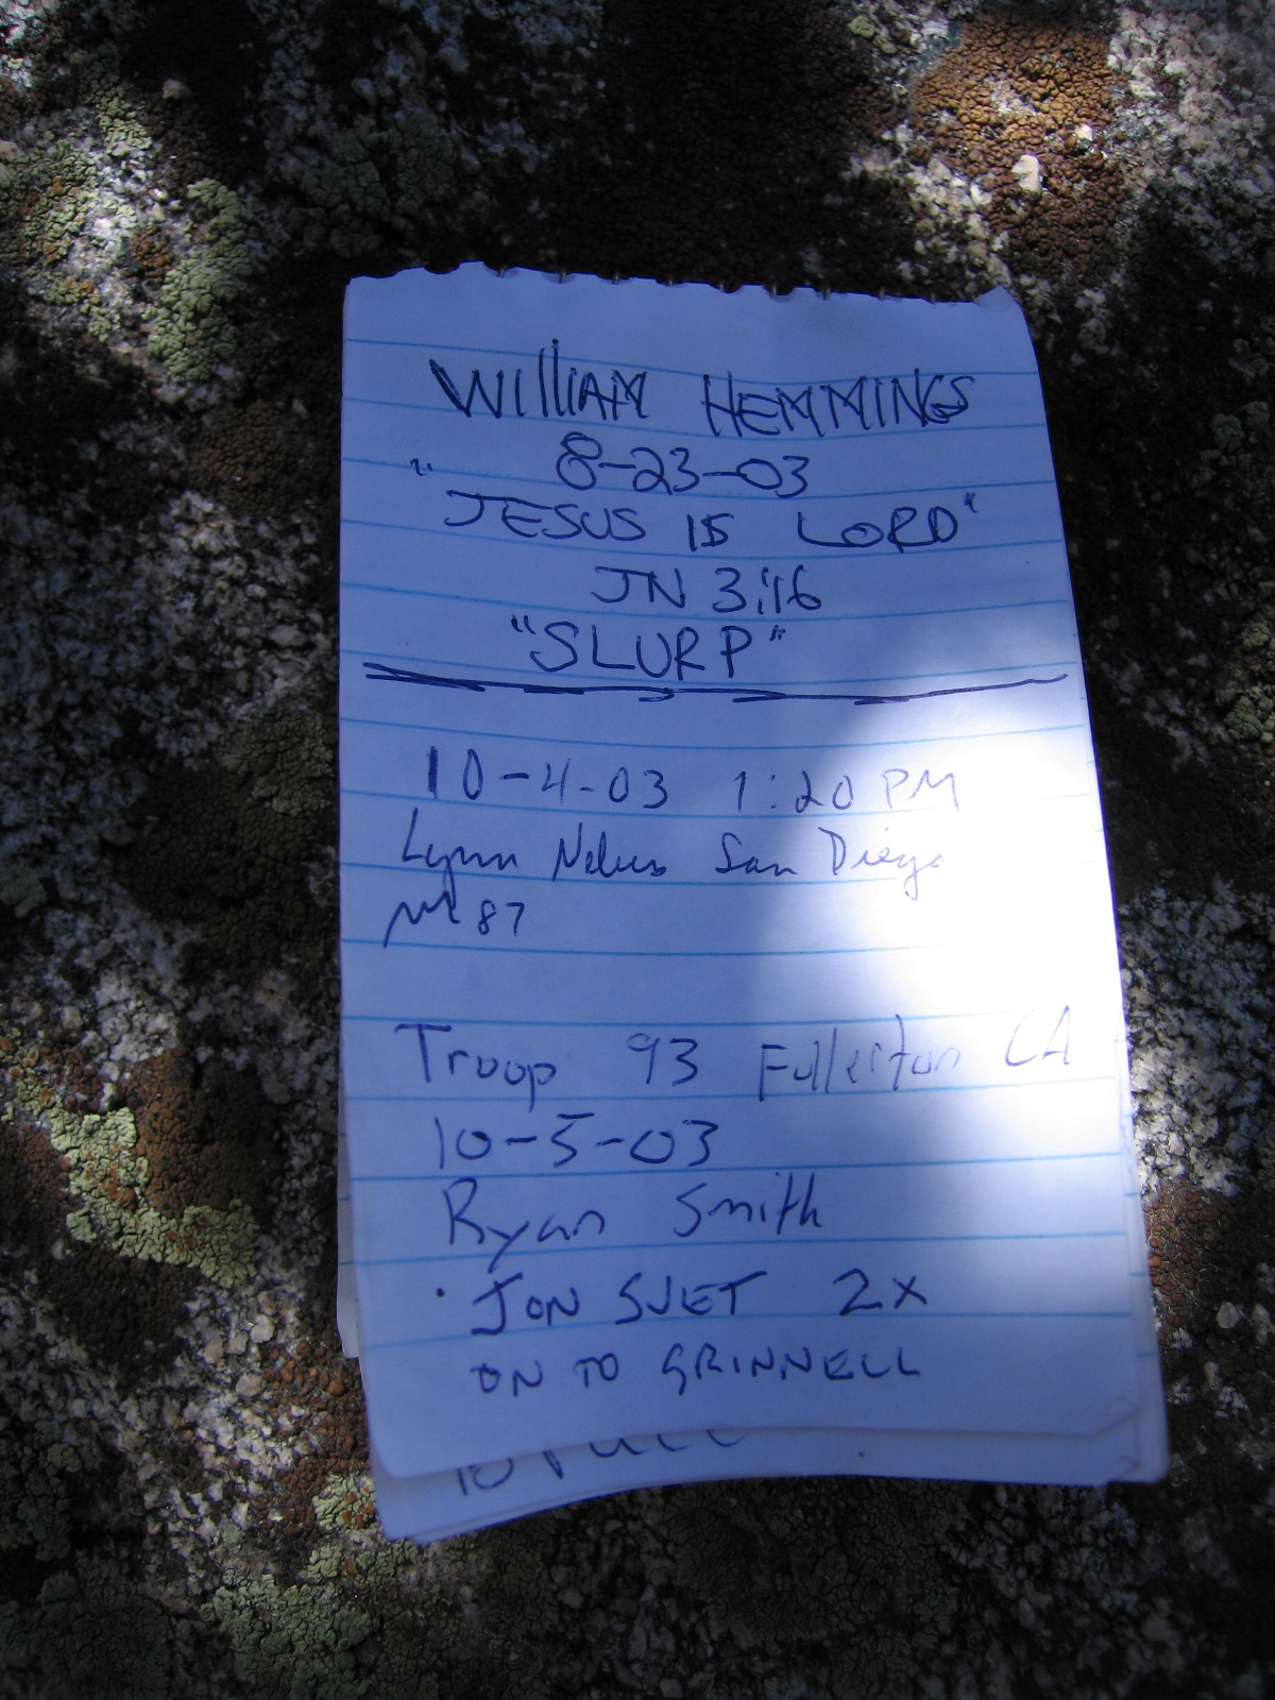 WILLIAM HEMMINGS
8-23-03
"JESUS IS LORD"
JN 3:16
"SLURP"
10-4-03 1:20 PM
Lynn San Diego
87
Troop 93 Fullerton CA
10-5-03
Ryan Smith
JON SJET 2X
ON TO GRINNELL